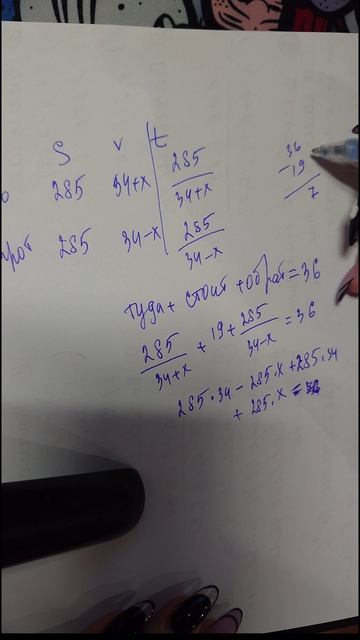 S v t
о 285 34+x 285/34+x
рот 285 34-x 285/34-x
36
-19
7
туда + стоит + обрат = 36
285/34+x + 19 + 285/34-x = 36
285·34 - 285·x + 285·34
+ 285·x =